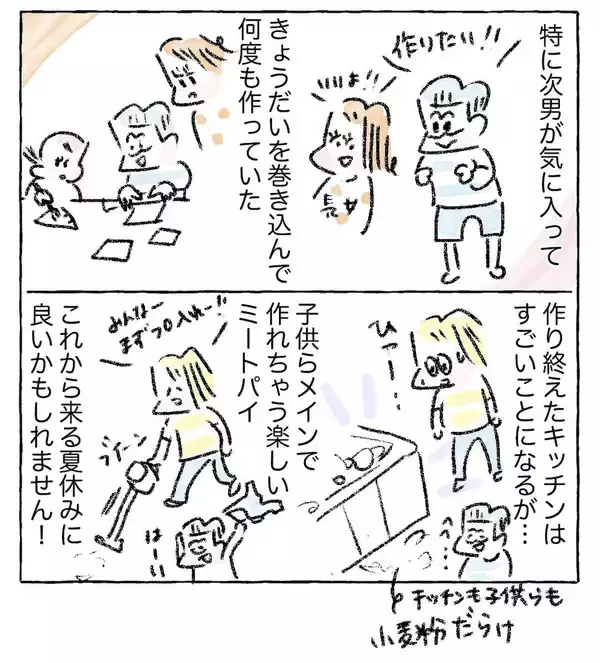 特に次男が気に入って
作りたい!!
いいよ!!
長女
きょうだいを巻き込んで
何度も作っていた
作り終えたキッチンは
すごいことになるが…
ひゃー…
う…
キッチンも子供らも
小麦粉だらけ
子供らメインで
作れちゃう楽しい
ミートパイ
みんなー
まずフロ入れー!!
ウィーン
はーい
これから来る夏休みに
良いかもしれません!